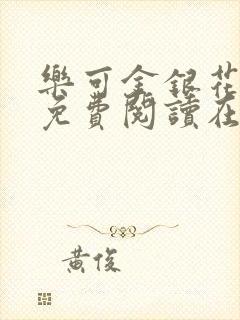 樂可金銀花
免費閱讀在
黃俊